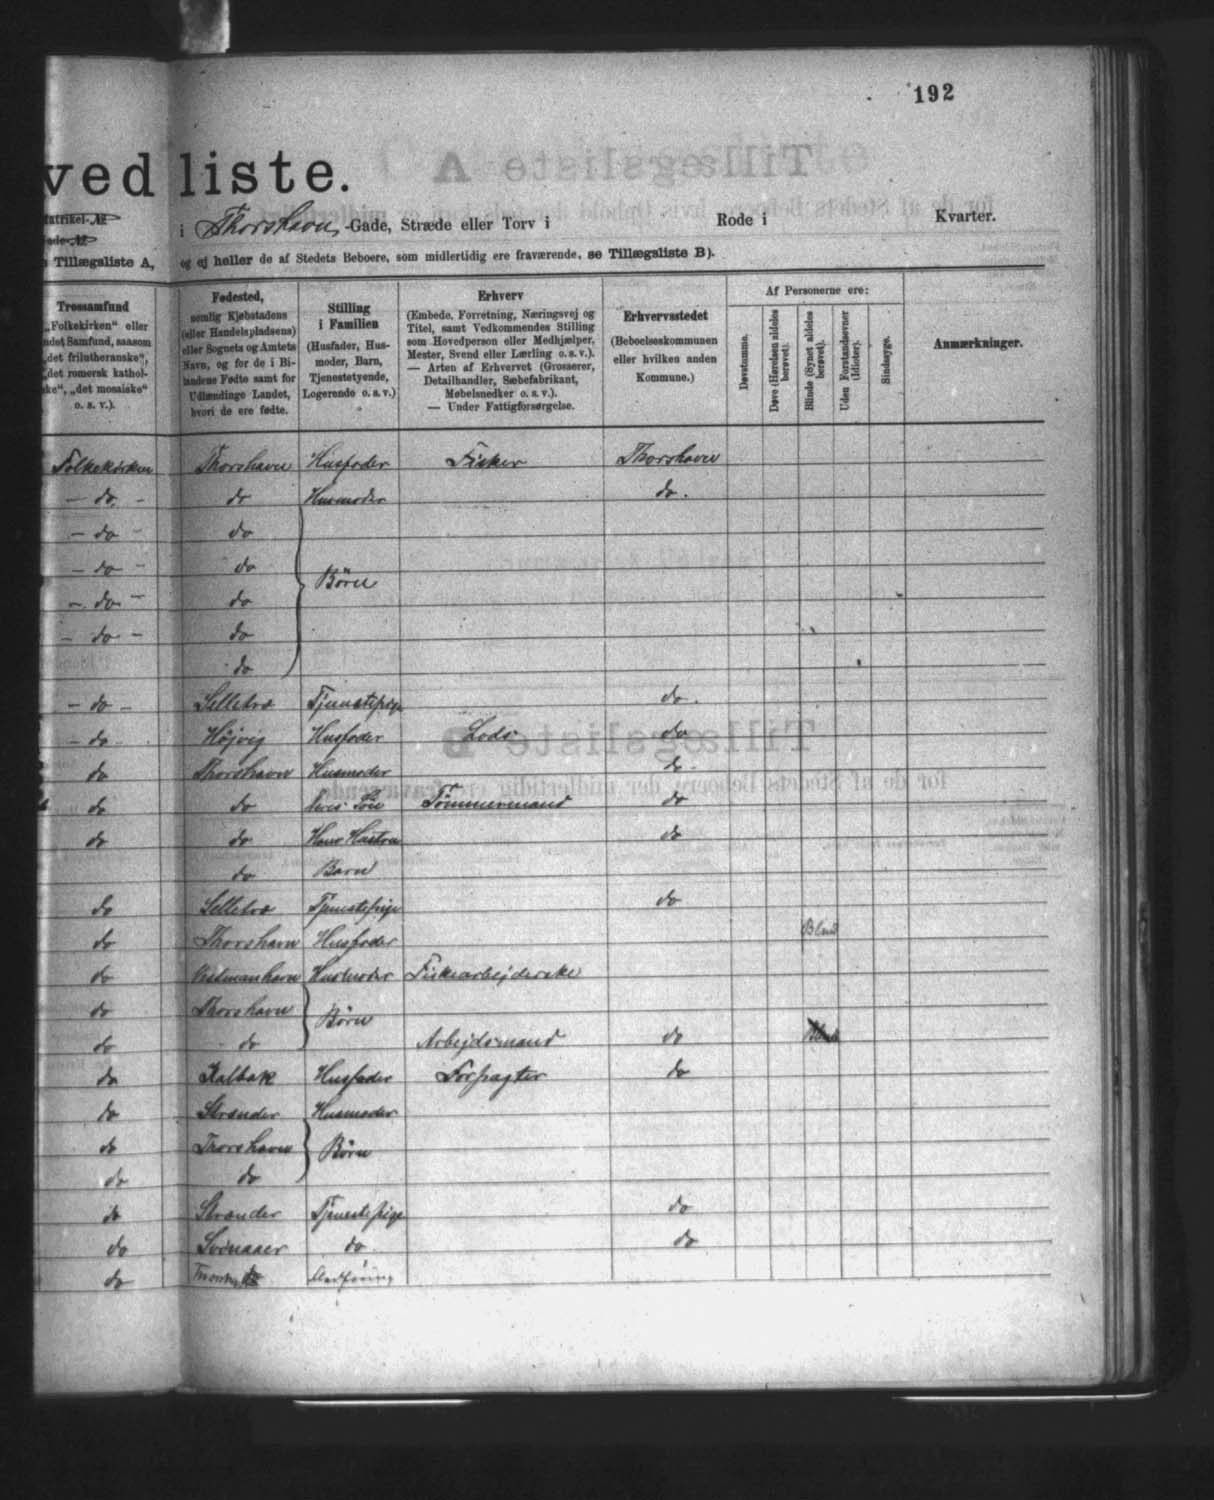 192
ved liste.
Matrikel-№
i Thorshavn -Gade, Stræde eller Torv i Rode i Kvarter.
Tillægsliste A, og ej heller de af Stedets Beboere, som midlertidig ere fraværende, se Tillægsliste B).
Trossamfund
„Folkekirken“ eller
andet Samfund, saasom
„det frilutheranske“,
„det romersk kathol-
ske“, „det mosaiske“
o. s. v.).
Fødested,
nemlig Kjøbstadens
(eller Handelspladsens)
eller Sognets og Amtets
Navn, og for de i Bi-
landene Fødte samt for
Udlændinge Landet,
hvori de ere fødte.
Stilling
i Familien
(Husfader, Hus-
moder, Barn,
Tjenestetyende,
Logerende o. s. v.)
Erhverv
(Embede, Forretning, Næringsvej og
Titel, samt Vedkommendes Stilling
som Hovedperson eller Medhjælper,
Mester, Svend eller Lærling o. s. v.).
— Arten af Erhvervet (Grosserer,
Detailhandler, Sæbefabrikant,
Møbelsnedker o. s. v.).
— Under Fattigforsørgelse.
Erhvervsstedet
(Beboelseskommunen
eller hvilken anden
Kommune.)
Af Personerne ere:
Døvstumme.
Døve (Hørelsen aldeles
berøvet).
Blinde (Synet aldeles
berøvet).
Uden Forstandsevner
(Idioter).
Sindssyge.
Anmærkninger.
Folkekirken Thorshavn Husfader Fisker Thorshavn
- do - do Husmoder do.
- do - do
- do - do Børn
- do - do
- do - do
do
- do - Selletræ Tjenestepige do.
- do - Højvig Husfader Lods do
do Thorshavn Husmoder do
do do Søn Tømmermand do
do do Hans Hustru do
do Barn
do Selletræ Tjenestepige do
do Thorshavn Husfader Blind
do Vestmanhavn Husmoder Fiskearbejderske
do Thorshavn Børn
do do Arbejdsmand do
do Kalbak Husfader Forpagter do
do Strænder Husmoder
do Thorshavn Børn
do do
do Strænder Tjenestepige do
do do do
do